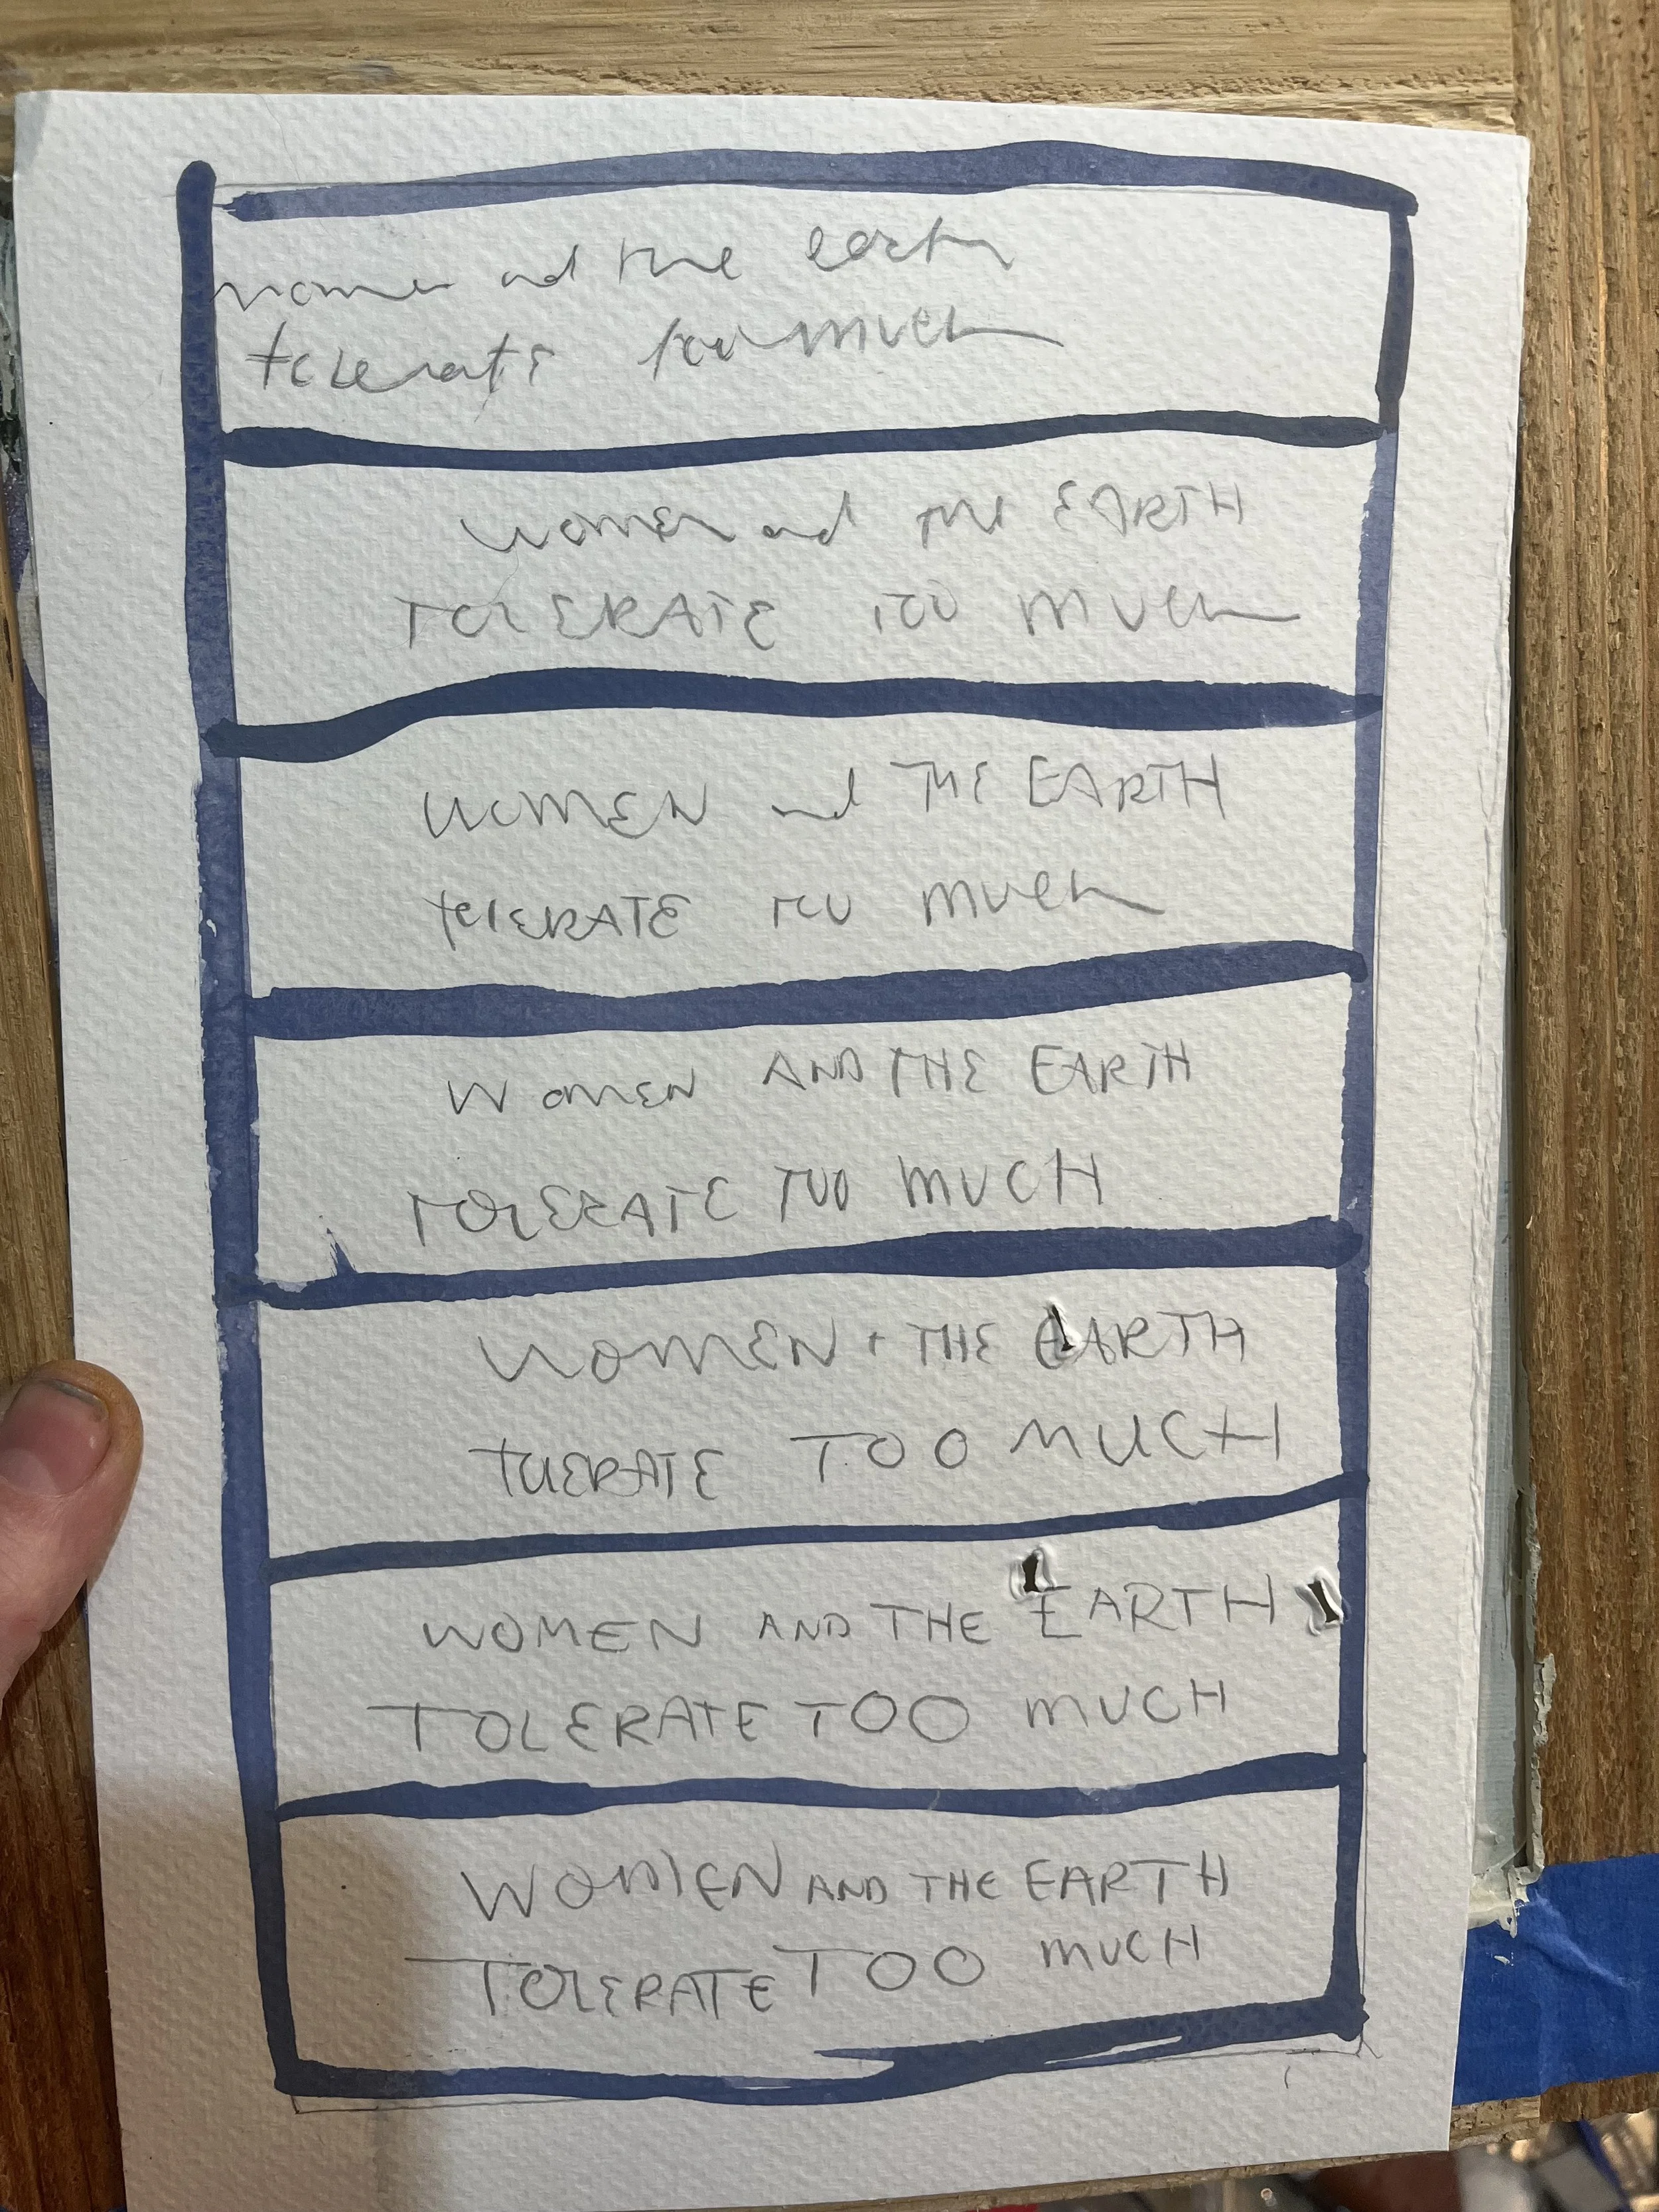 women and the earth
tolerate too much
WOMEN and THE EARTH
TOLERATE TOO MUCH
WOMEN and THE EARTH
tOLERATE TOO MUCH
WOMEN AND THE EARTH
TOLERATE TOO MUCH
WOMEN + THE EARTH
tOLERATE TOO MUCH
WOMEN AND THE EARTH
TOLERATE TOO MUCH
WOMEN AND THE EARTH
TOLERATE TOO MUCH